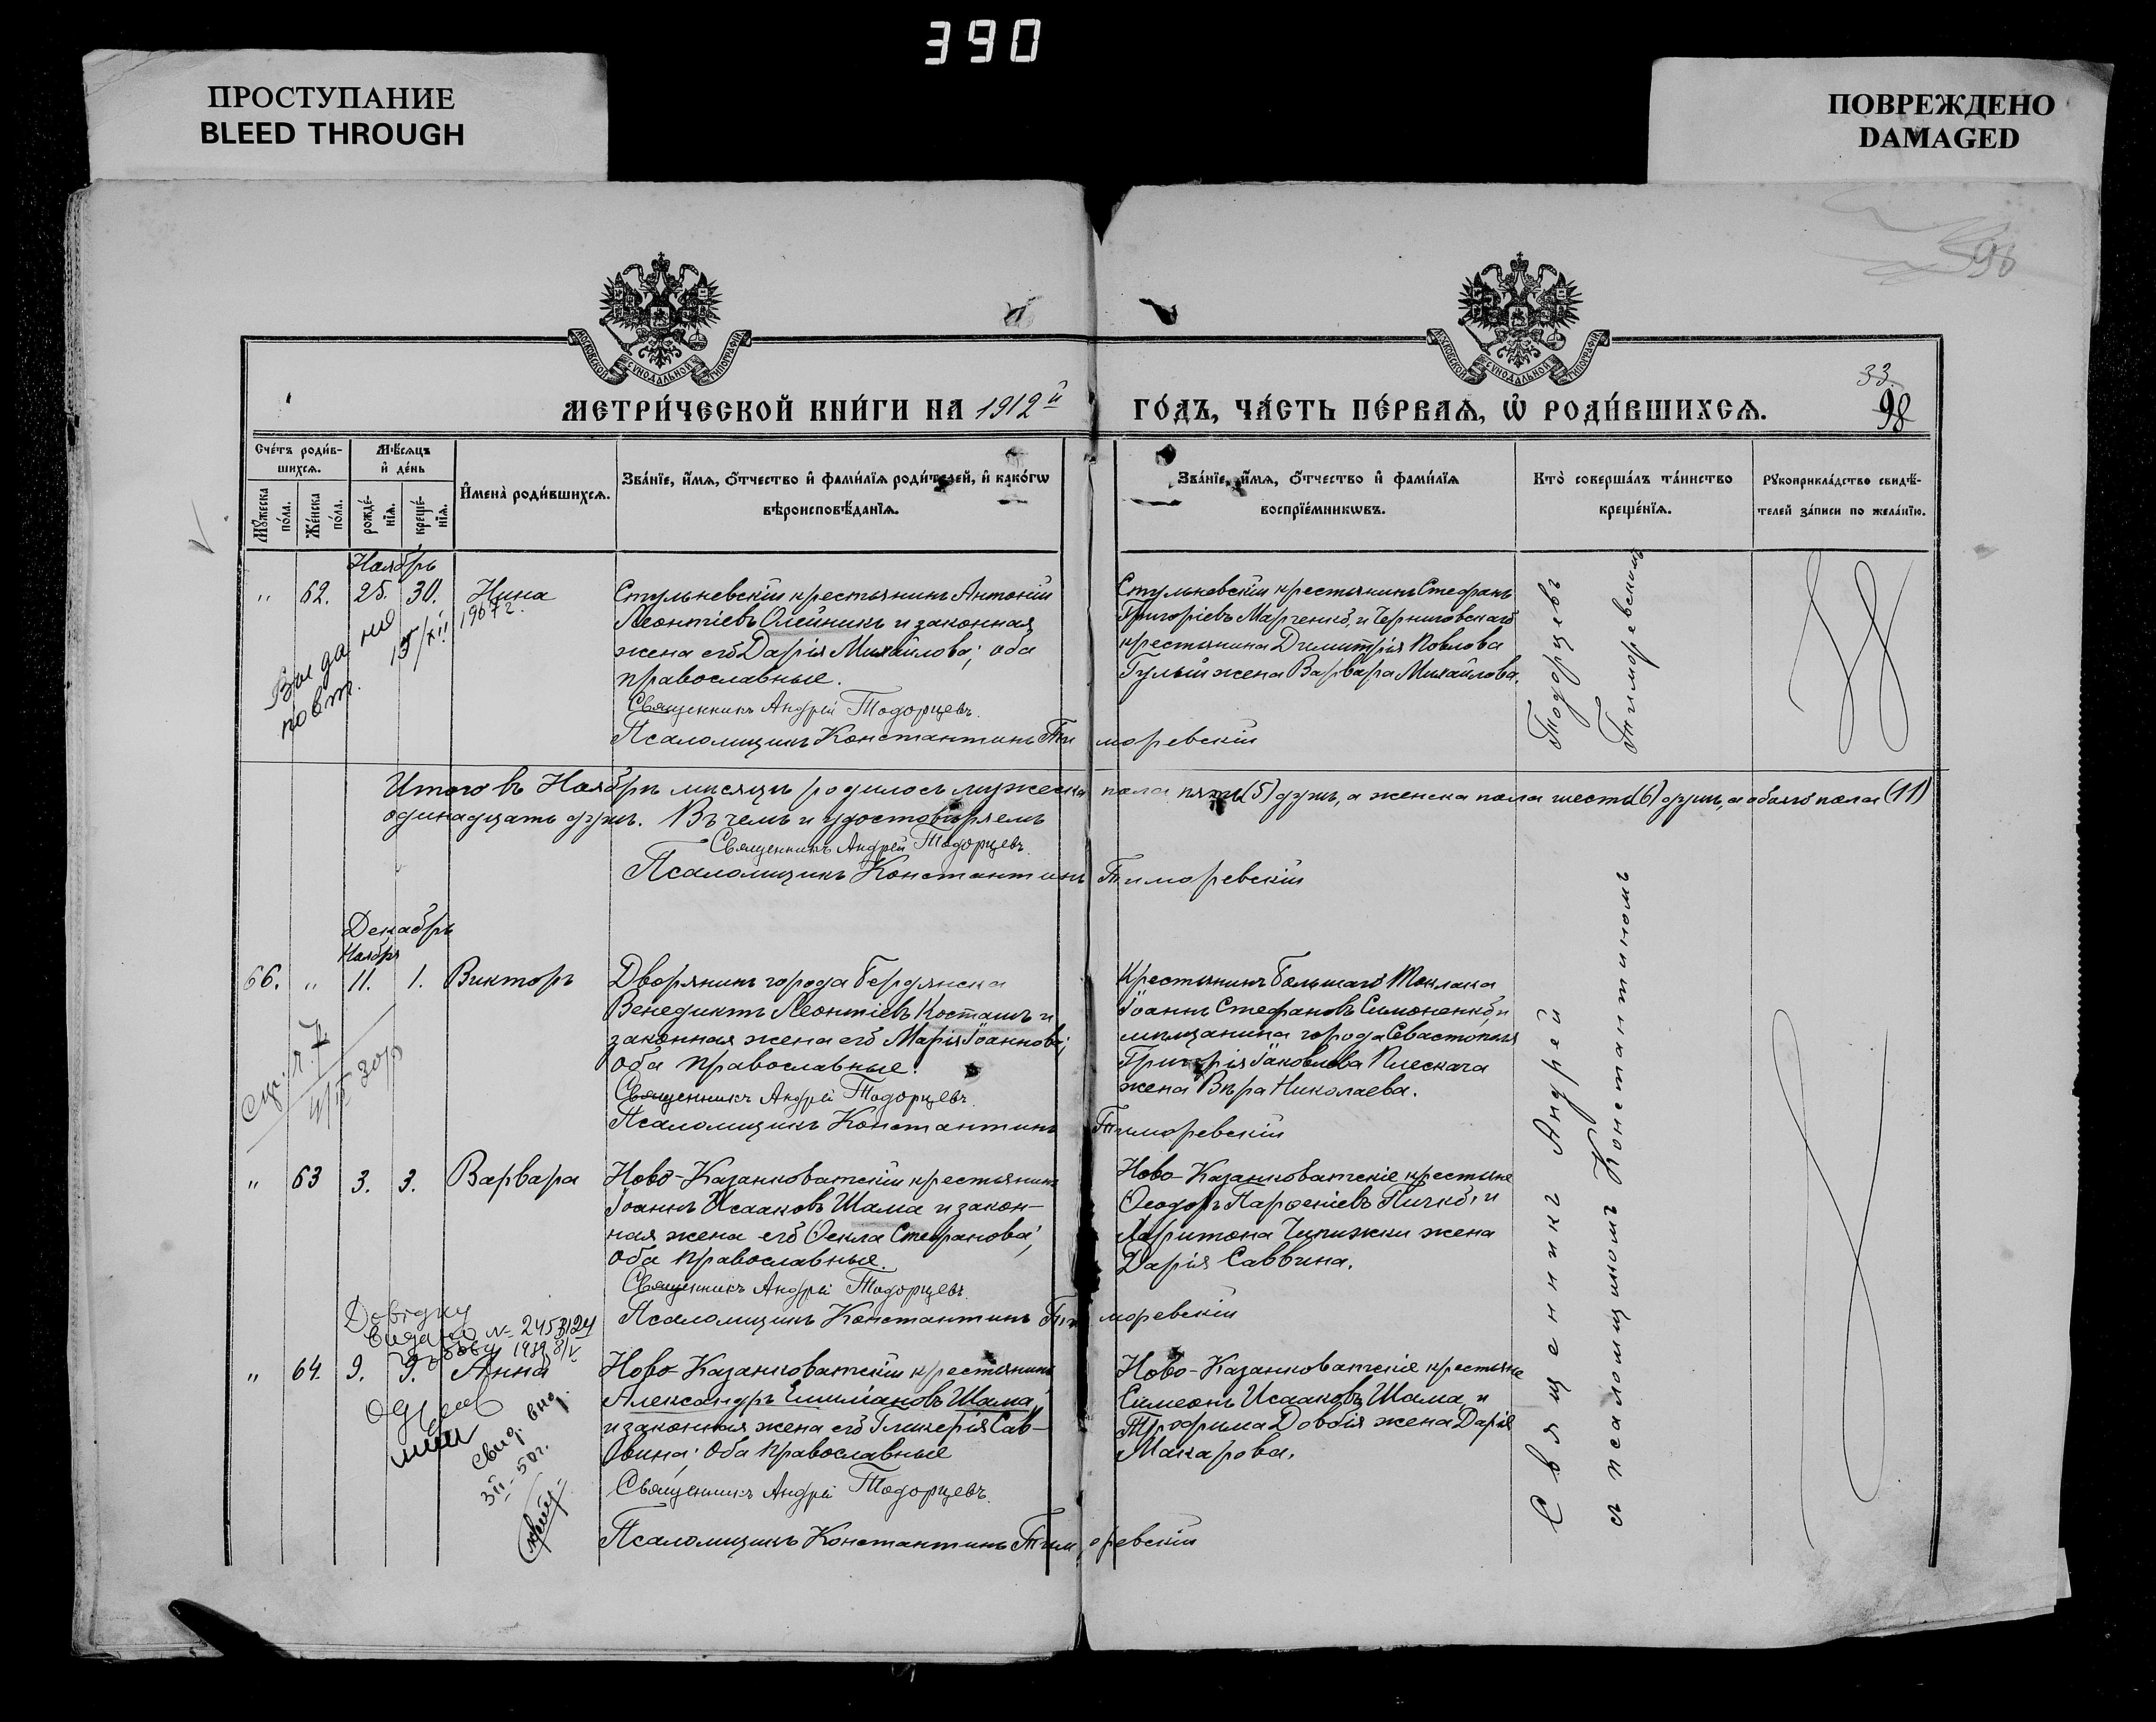 390
ПРОСТУПАНИЕ
BLEED THROUGH
ПОВРЕЖДЕНО
DAMAGED
98
МОСКОВСКОЙ СѴНОДАЛЬНОЙ ТИПОГРАФІИ
МОСКОВСКОЙ СѴНОДАЛЬНОЙ ТИПОГРАФІИ
33
98
МЕТРИ́ЧЕСКОЙ КНИ́ГИ НА 1912й ГО́ДЪ, ЧА́СТЬ ПЕ́РВАѦ, Ѡ҆ РОДИ́ВШИХСѦ.
Сче́тъ роди́в-
шихсѧ.
Мѣ́сѧцъ
и҆ де́нь
Мꙋ́жеска
по́ла.
Же́нска
по́ла.
рожде́-
нїѧ.
креще́-
нїѧ.
И҆мена̀ роди́вшихсѧ.
Зва́нїе, и҆́мѧ, ѻ҆́тчество и҆ фами́лїѧ роди́телей, и҆ како́гѡ
вѣроисповѣ́данїѧ.
Зва́нїе, и҆́мѧ, ѻ҆́тчество и҆ фами́лїѧ
воспрїе́мникѡвъ.
Кто̀ соверша́лъ та́инство
креще́нїѧ.
Рꙋкоприкла́дство свидѣ́-
телей за́писи по жела́нїю.
Ноябрь
" 62. 25. 30. Нина
Выдано
повт.
15/XII 1967г.
Стульневскій крестьянинъ Антоній
Леонтіевъ Олейникъ и законная
жена его Дарія Михайлова; оба
православные.
Священникъ Андрей Тодорцевъ.
Псаломщикъ Константинъ Тиморевскій
Стульневскій крестьянинъ Стефанъ
Григоріевъ Марченко, и Черниговскаго
крестьянина Димитрія Павлова
Гулый жена Варвара Михайлова.
Тодорцевъ
Тиморевскимъ
Итого въ Ноябрѣ мѣсяцѣ родилось мужеска пола пять (5) душъ, а женска пола шесть (6) душъ, а обоего пола (11)
одинадцать душъ. Въ чемъ и удостовѣряемъ
Священникъ Андрей Тодорцевъ.
Псаломщикъ Константинъ Тиморевскій
Декабрь
Ноября
66. " 11. 1. Викторъ
Дворянинъ города Бердянска
Венедиктъ Леонтіевъ Косташъ и
законная жена его Марія Іоаннова;
оба православные.
Священникъ Андрей Тодорцевъ.
Псаломщикъ Константинъ Тиморевскій
Крестьянинъ Большаго Токмака
Іоаннъ Стефановъ Симоненко, и
мѣщанина города Севастополя
Григорія Іаковлева Плескача
жена Вѣра Николаева.
" 63 3. 3. Варвара
Ново-Казанковатскій крестьянинъ
Іоаннъ Исааковъ Шама и закон-
ная жена его Ѳекла Стефанова;
оба православные.
Священникъ Андрей Тодорцевъ.
Псаломщикъ Константинъ Тиморевскій
Ново-Казанковатскіе крестьяне
Ѳеодоръ Парѳеніевъ Пичко, и
Харитона Чипижки жена
Дарія Саввина.
Довідку
видано №
" 64. 9. 9. Анна
Свид. выд.
Ново-Казанковатскій крестьянинъ
Александръ Емиліановъ Шама
и законная жена его Гликерія Сав-
вина; оба православные
Священникъ Андрей Тодорцевъ.
Псаломщикъ Константинъ Тиморевскій
Ново-Казанковатскіе крестьяне
Симеонъ Исааковъ Шама, и
Трофима Довбія жена Дарія
Макарова.
Священникъ Андрей
съ псаломщикомъ Константиномъ